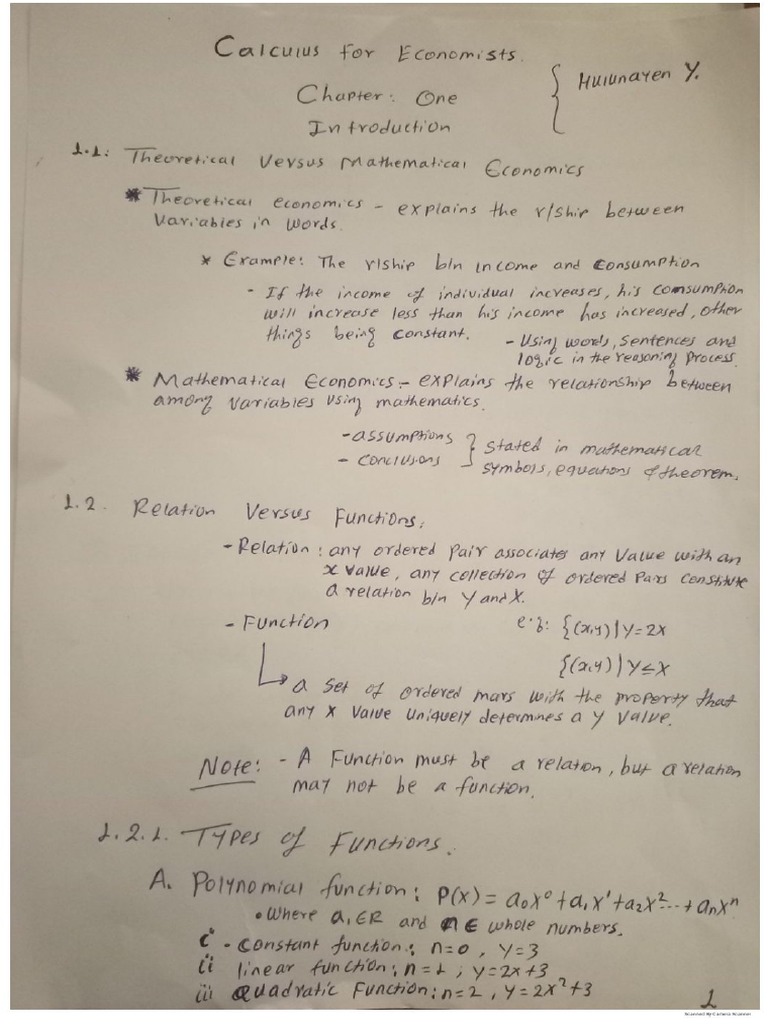 Calculus for Economists.
Chapter: One
Introduction
Hulunayen Y.
1.1: Theoretical Versus Mathematical Economics
* Theoretical economics - explains the r/ship between
Variables in words.
* Example: The r/ship b/n income and consumption
- If the income of individual increases, his comsumption
will increase less than his income has increased, other
things being constant.
- Using words, sentences and
logic in the reasoning process.
* Mathematical Economics:- explains the relationship between
among variables using mathematics.
- assumptions
- conclusions
} stated in mathematical
symbols, equations & theorem.
1.2. Relation Versus Functions;
- Relation: any ordered pair associates any value with an
x value, any collection of ordered pairs constitute
a relation b/n Y and X.
- Function
e.g: {(x,y)|Y=2X
{(x,y)|Y≤X
a set of ordered mars with the property that
any x value uniquely determines a y value.
Note: - A Function must be a relation, but a relation
may not be a function.
1.2.1. Types of Functions.
A. Polynomial function: P(x) = a₀x⁰+a₁x¹+a₂x²...+aₙxⁿ
• where aᵢ∈R and n∈ whole numbers.
i - constant function: n=0, y=3
ii linear function: n=1, y=2x+3
iii Quadratic Function: n=2, y=2x²+3
1